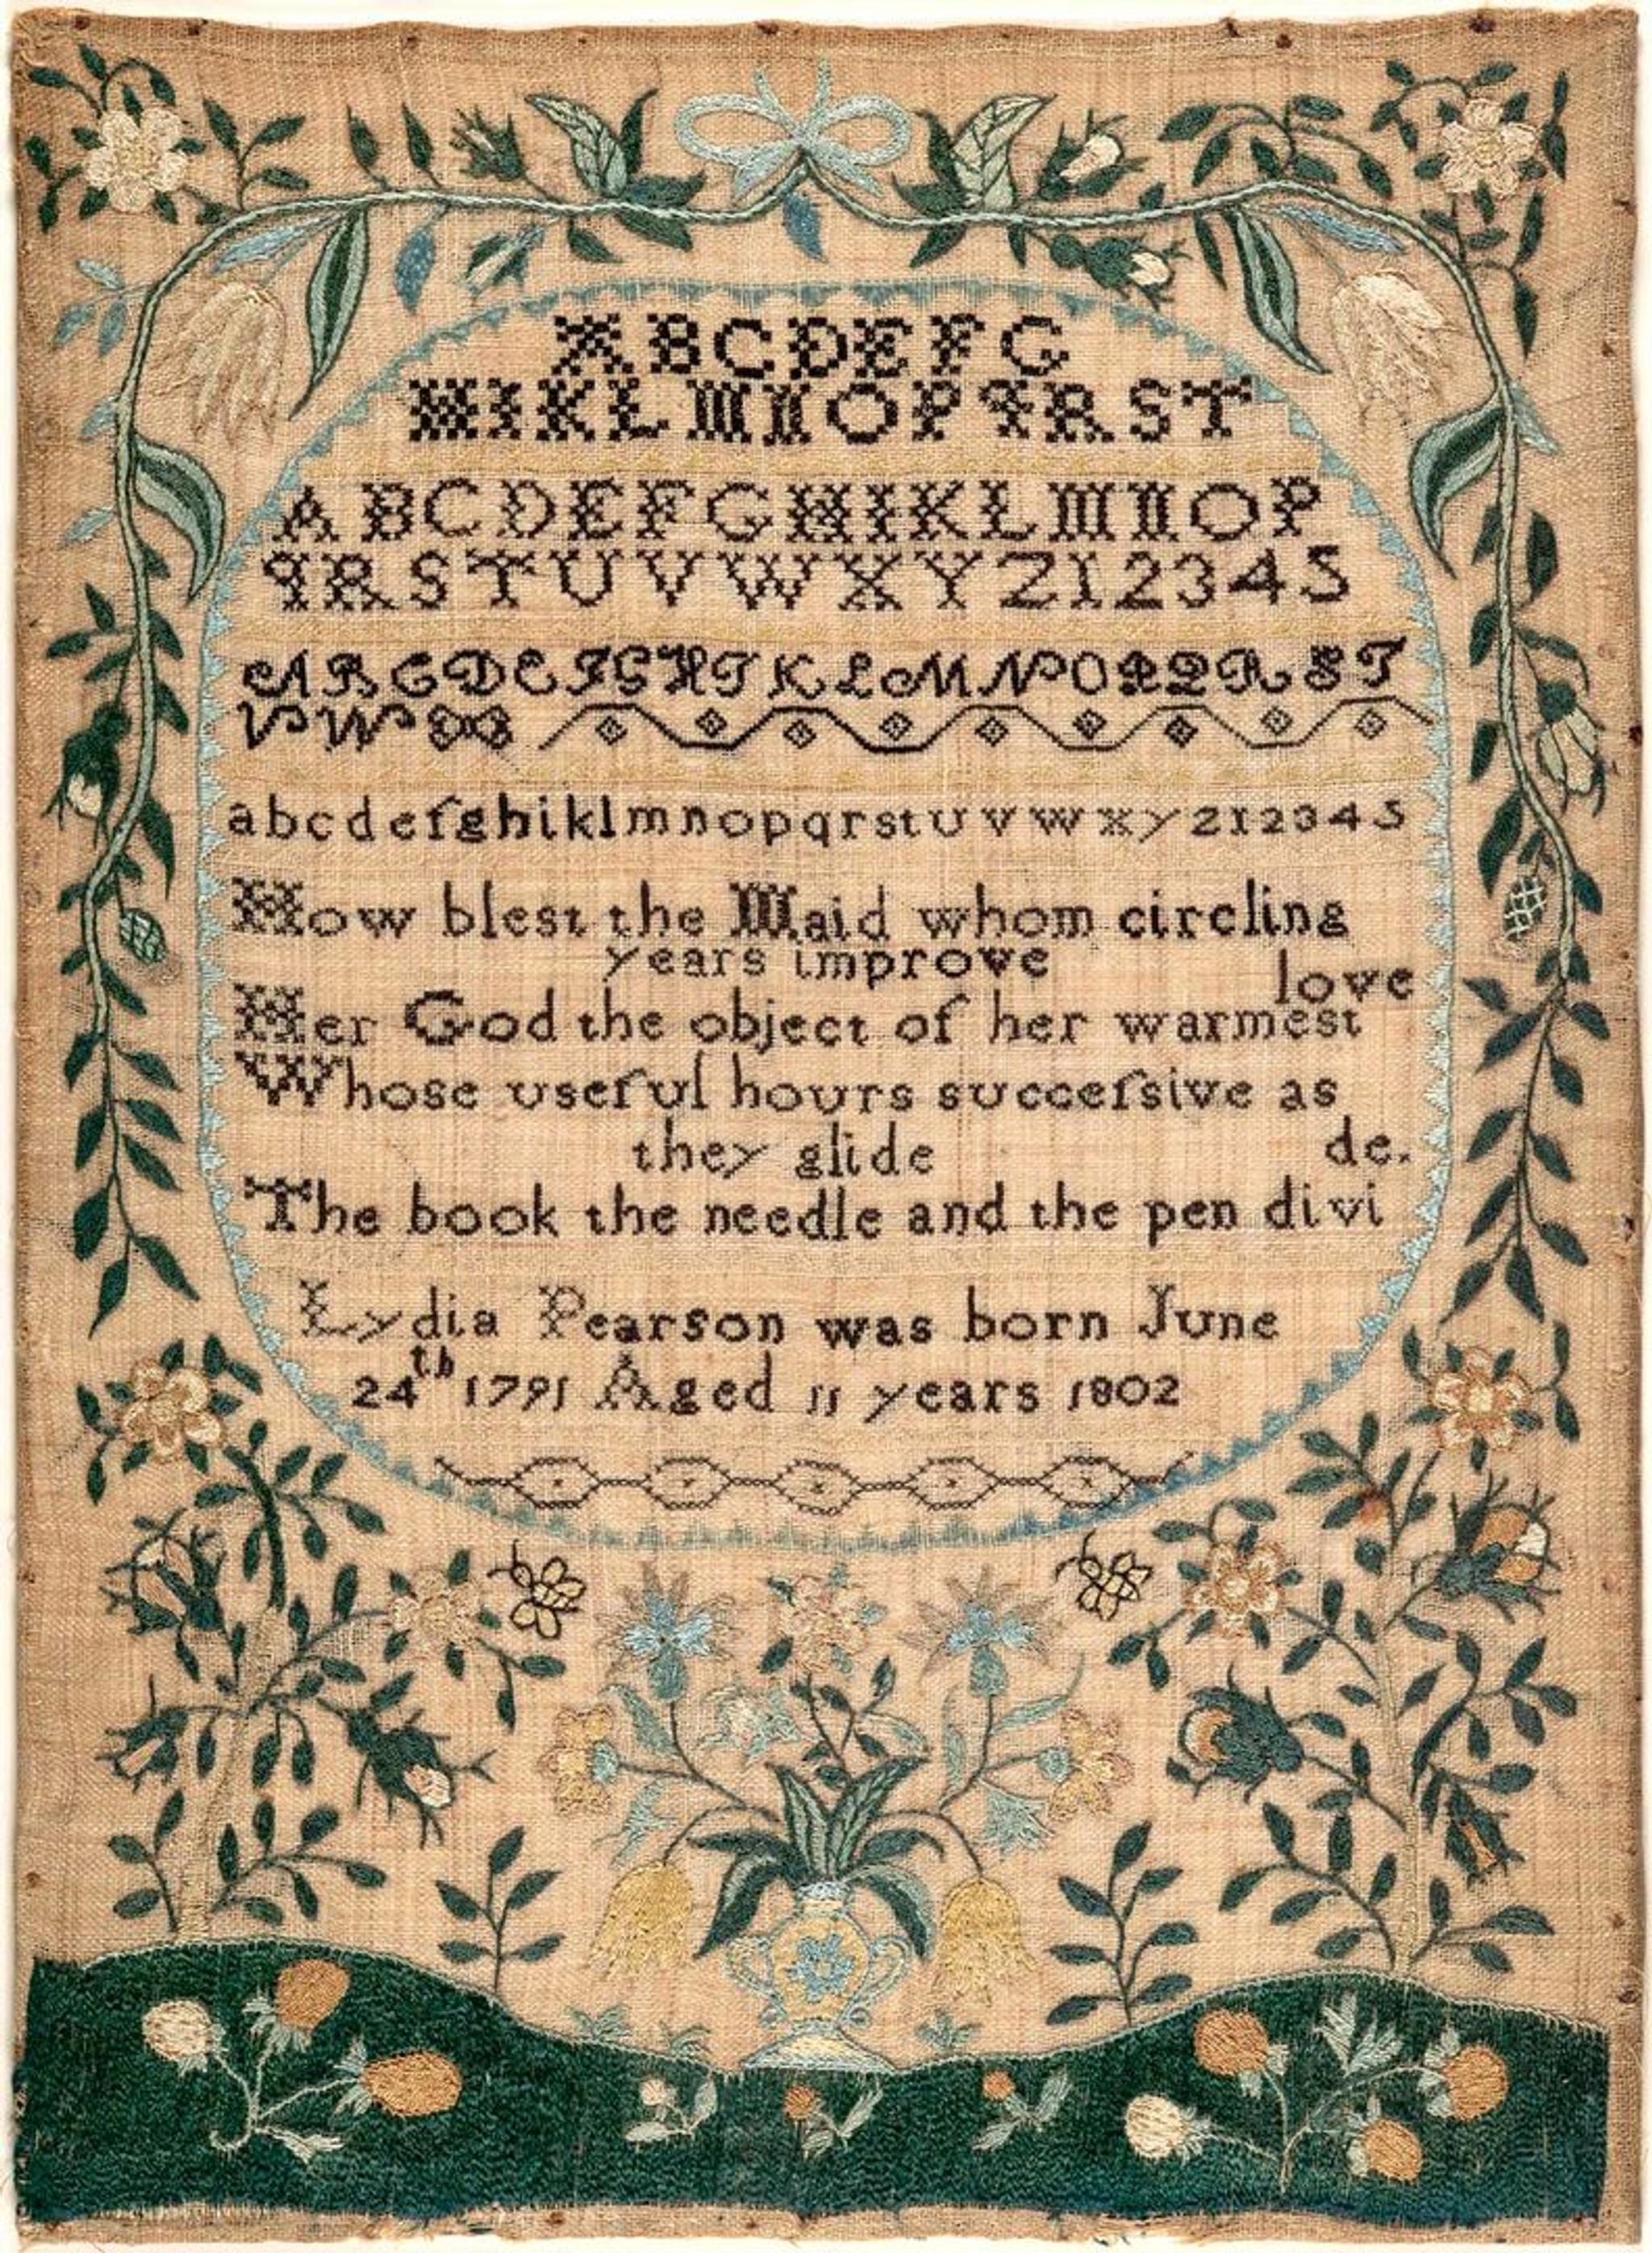 ABCDEFG
HIKLMNOPQRST
ABCDEFGHIKLMNOP
QRSTUVWXYZ12345
ABCDEFGHIKLMNOPQRST
VWX
abcdefghiklmnopqrstuvwxyz12345
How blest the Maid whom circling
years improve
love
Her God the object of her warmest
Whose useful hours succeſsive as
they glide
de.
The book the needle and the pen divi
Lydia Pearson was born June
24th 1791 Aged 11 years 1802